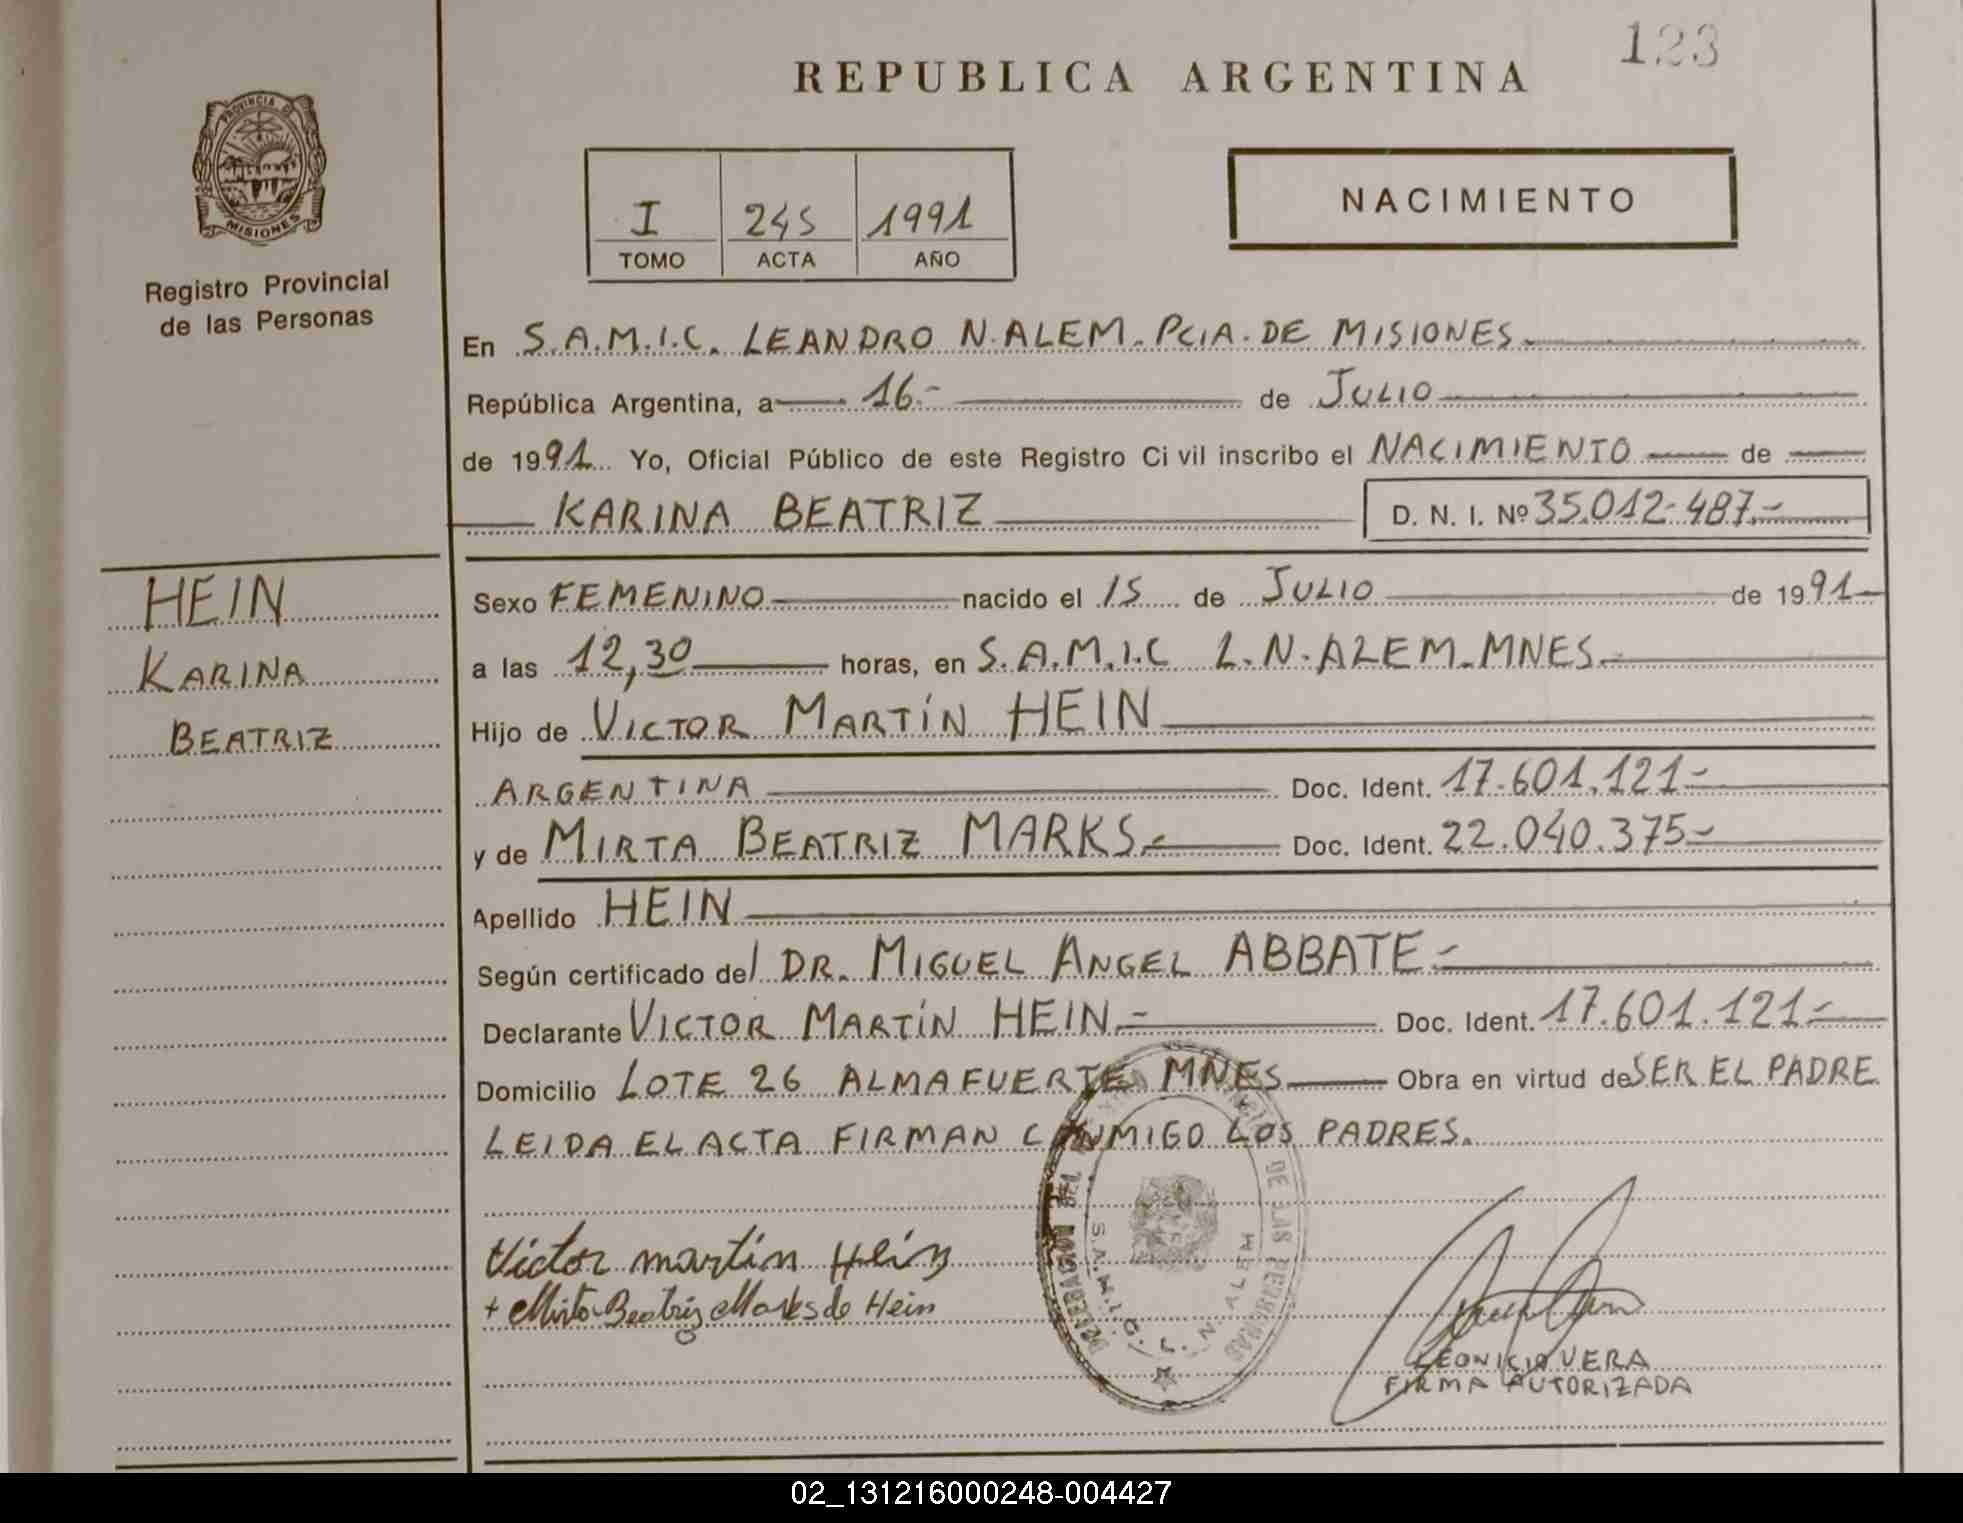 123
REPUBLICA ARGENTINA
PROVINCIA DE
MISIONES
Registro Provincial
de las Personas
I 245 1991
TOMO ACTA AÑO
NACIMIENTO
En S.A.M.I.C. LEANDRO N. ALEM. PCIA. DE MISIONES
República Argentina, a 16.- de JULIO
de 1991 Yo, Oficial Público de este Registro Civil inscribo el NACIMIENTO de
KARINA BEATRIZ D. N. I. Nº 35.012.487.-
HEIN
KARINA
BEATRIZ
Sexo FEMENINO nacido el 15 de JULIO de 1991
a las 12,30 horas, en S.A.M.I.C L.N. ALEM. MNES.
Hijo de VICTOR MARTÍN HEIN
ARGENTINA Doc. Ident. 17.601.121-
y de MIRTA BEATRIZ MARKS.- Doc. Ident. 22.040.375-
Apellido HEIN
Según certificado del DR. MIGUEL ANGEL ABBATE.-
Declarante VICTOR MARTÍN HEIN.- Doc. Ident. 17.601.121-
Domicilio LOTE 26 ALMAFUERTE MNES Obra en virtud de SER EL PADRE
LEIDA EL ACTA FIRMAN CONMIGO LOS PADRES.
Victor martin Hein
+ Mirta Beatriz Marks de Hein
DE LAS PERSONAS
S.A.M.I.C. L. N. ALEM
LEONICIO VERA
FIRMA AUTORIZADA
02_131216000248-004427